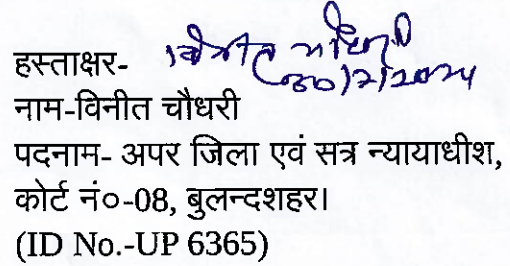 हस्ताक्षर- विनीत चौधरी
नाम-विनीत चौधरी
पदनाम- अपर जिला एवं सत्र न्यायाधीश,
कोर्ट नं०-08, बुलन्दशहर।
(ID No.-UP 6365)